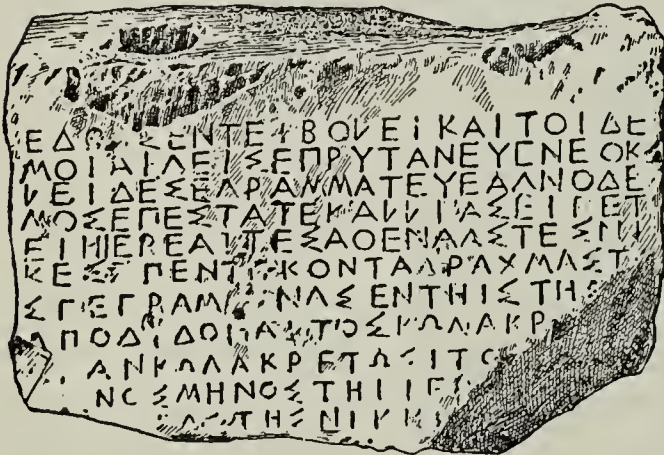 ΕΔΟΧΣΕΝΤΕΙΒΟΛΕΙΚΑΙΤΟΙΔΕ
ΜΟΙΑΙΓΕΙΣΕΠΡΥΤΑΝΕΥΕΝΕΟΚ
ΛΕΙΔΕΣΕΓΡΑΜΜΑΤΕΥΕΑΓΝΟΔΕ
ΜΟΣΕΠΕΣΤΑΤΕΚΑΛΛΙΑΣΕΙΠΕΤ
ΕΙΗΙΕΡΕΑΙΤΕΣΑΘΕΝΑΑΣΤΕΣΝΙ
ΚΕΣΠΕΝΤΕΚΟΝΤΑΔΡΑΧΜΑΣΤ
ΣΓΕΓΡΑΜΜΕΝΑΣΕΝΤΗΙΣΤΗ
ΑΠΟΔΙΔΟΝΑΙΤΟΣΚΩΛΑΚΡ
ΑΝΚΩΛΑΚΡΕΤΩΣΙΤΟ
ΝΟΣΜΗΝΟΣΤΗΙΙΕΡ
ΤΗΣΝΙΚΗ